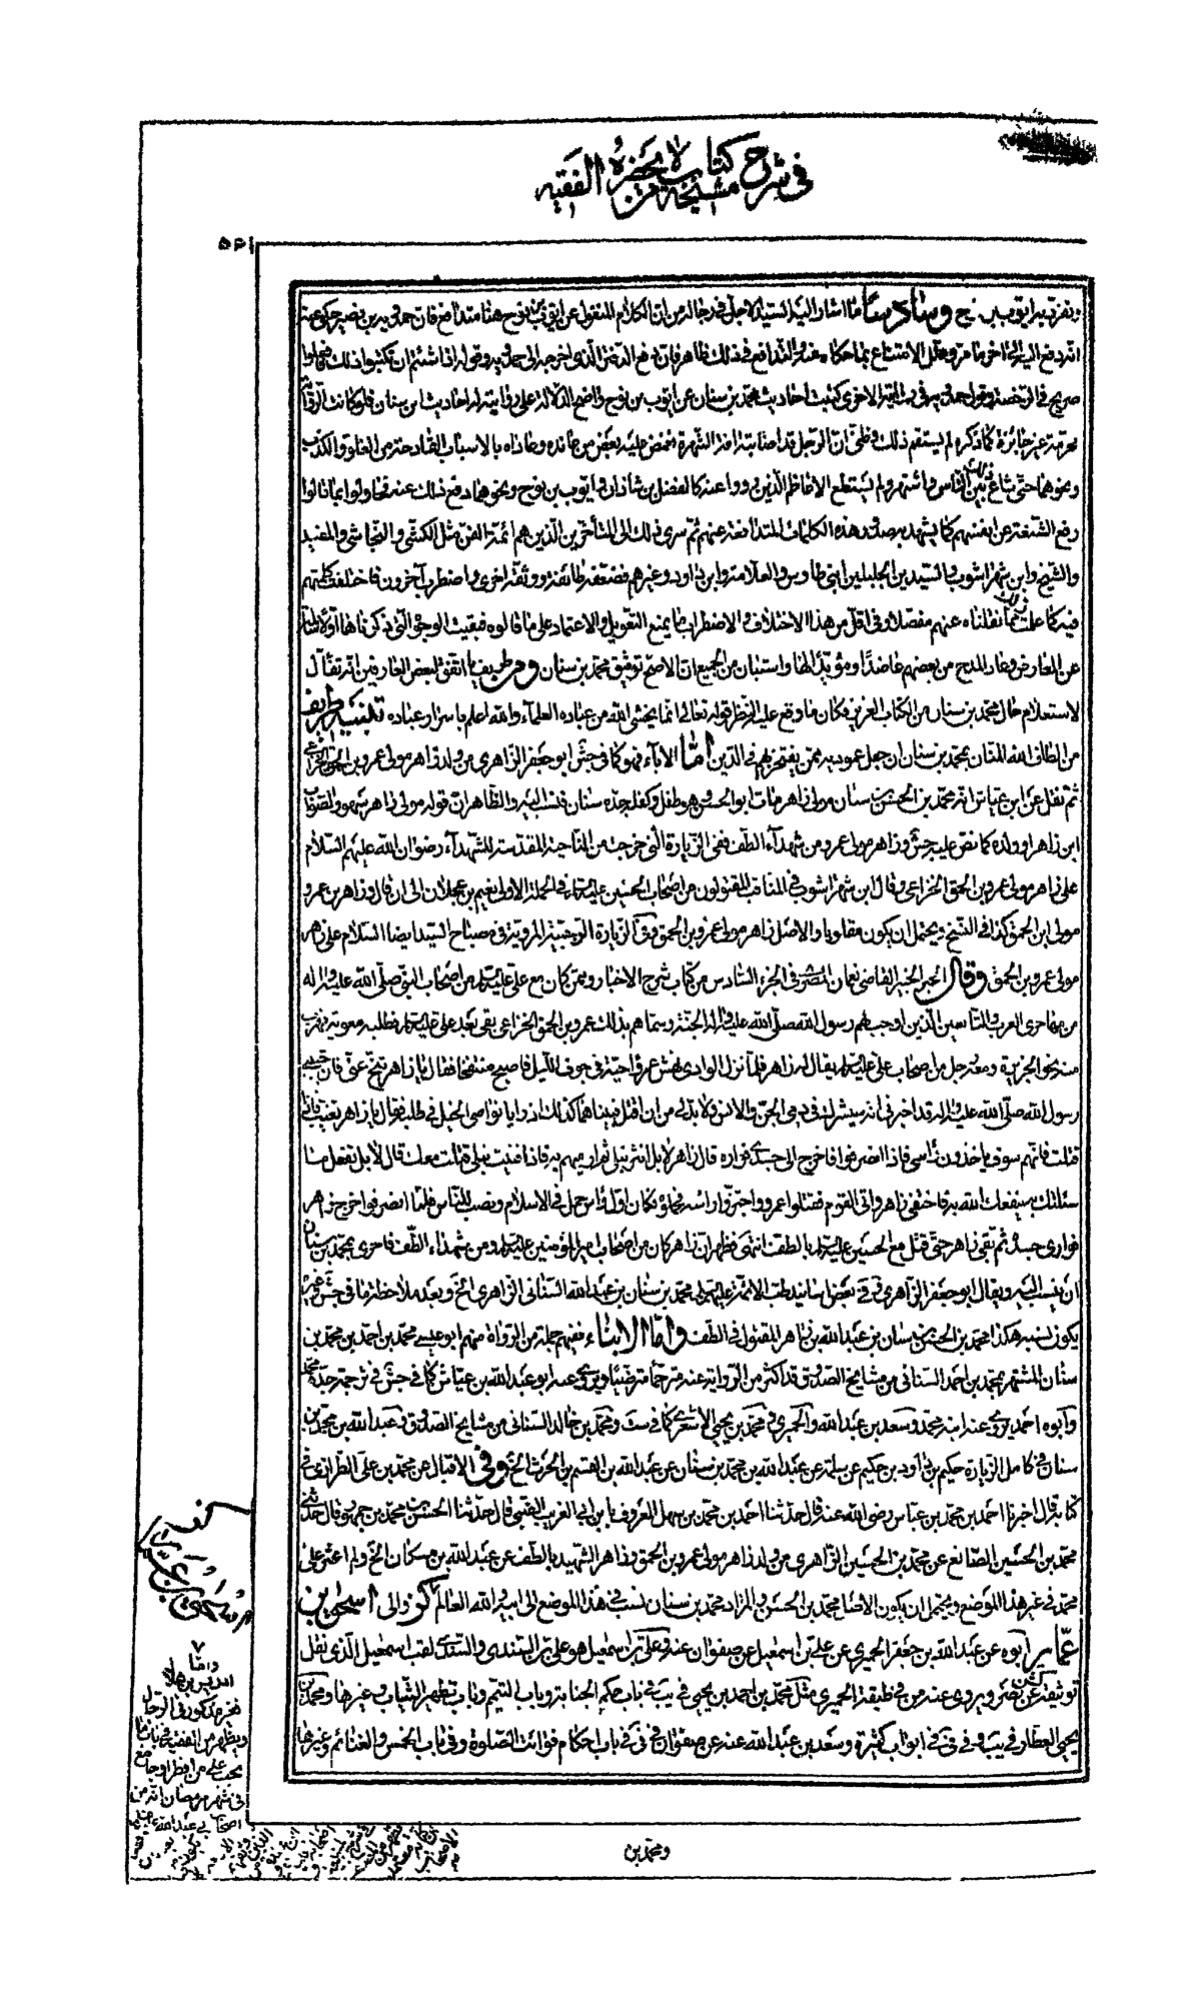 في شرح مشيخة كتاب من لا يحضره الفقيه
٥٦١
وسادسا ما اشار اليه السيد الاجل في رجاله من ان الكلام المنقول عن ايوب بن نوح هنا متدافع فان حمدويه بن نصير حكى عنه
انه دفع اليه
صريح في الرخصة وقول حمدويه في الاخرى كتبت احاديث محمد بن سنان عن ايوب بن نوح واضح الدلالة على روايته له احاديث ابن سنان فلو كانت الرواية
محرمة غير جائزة كما ذكره لم يستقم ذلك في ظني ان الرجل قد اصابته افة الشهرة فغمض عليه بعض من عانده وعاداه بالاسباب القادحة من الغلو والكذب
ونحوهما حتى شاع بين الناس واشتهر ولم يستطع الاعاظم الذين رووا عنه كالفضل بن شاذان وايوب بن نوح ونحوهما دفع ذلك عنه فحاولوا بما قالوا
رفع الشنعة عن انفسهم كما يشهد به صدور هذه الكلمات المتدافعة عنهم ثم سرى ذلك الى المتأخرين الذين هم ائمة الفن مثل الكشي والنجاشي والمفيد
والشيخ وابن شهراشوب والسيدين الجليلين ابني طاوس والعلامة وابن داود وغيرهم فضعفه طائفة ووثقه اخرى واضطرب آخرون فاختلفت كلمتهم
فيه كما علمت مما نقلناه عنهم مفصلا وفي اقل من هذا الاختلاف والاضطراب ما يمنع التعويل والاعتماد على ما قالوه فبقيت الوجوه التي ذكرناها اولا سالمة
عن المعارض وعاد المدح من بعضهم عاضدا ومؤيدا لها واستبان من الجميع ان الاصح توثيق محمد بن سنان ومن طريف ما اتفق لبعض العارفين انه تفأل
لاستعلام حال محمد بن سنان من الكتاب العزيز فكان ما وقع عليه النظر قوله تعالى انما يخشى الله من عباده العلماء والله اعلم باسرار عباده تنبيه طريف
من الطاف الله المنان بمحمد بن سنان ان جعل عموديه ممن يفتخر بهم في الدين اما الاباء فهو كما في جش ابو جعفر الزاهري من ولد زاهر مولى عمرو بن الحمق الخزاعي
ثم نقل عن ابن عياش انه محمد بن الحسن بن سنان مولى زاهر مات ابوه الحسن وهو طفل وكفله جده سنان فنسب اليه والظاهر ان قوله مولى زاهر سهو والصواب
ابن زاهر او ولده كما نص عليه جش وزاهر مولى عمرو من شهداء الطف ففي الزيارة التي خرجت من الناحية المقدسة للشهداء رضوان الله عليهم السلام
على زاهر مولى عمرو بن الحمق الخزاعي وقال ابن شهراشوب في المناقب المقتولون من اصحاب الحسين عليه السلام في الحملة الاولى نعيم بن عجلان الى ان قال وزاهر بن عمرو
مولى ابن الحمق كذا في النسخ ويحتمل ان يكون مقلوبا والاصل زاهر مولى عمرو بن الحمق وفي الزيارة الرجبية المروية في مصباح السيد ايضا السلام على زاهر
مولى عمرو بن الحمق وقال الحبر الخبير القاضي نعمان المصري في الجزء السادس من كتاب شرح الاخبار وممن كان مع علي عليه السلام من اصحاب النبي صلى الله عليه واله
من مهاجري العرب والتابعين الذين اوجب لهم رسول الله صلى الله عليه واله الجنة وسماهم بذلك عمرو بن الحمق الخزاعي بقي بعد علي عليه السلام فطلبه معوية فهرب
منه نحو الجزيرة ومعه رجل من اصحاب علي عليه السلام يقال له زاهر فلما نزل الوادي نهش عمروا حية في جوف الليل فاصبح منتفخا فقال يا زاهر تنح عني فان حبيبي
رسول الله صلى الله عليه واله قد اخبرني انه سيشرك في دمي الجن والانس ولا بد لي من ان اقتل فبينا هما كذلك اذ رايا نواصي الخيل في طلبه فقال يا زاهر تغيب فاذا
قتلت فانهم سوف ياخذون رأسي فاذا انصرفوا فاخرج الى جسدي فواره قال زاهر لا بل انثر نبلي ثم ارميهم به فاذا فنيت نبلي قتلت معك قال لا بل تفعل ما
سئلتك به ينفعك الله به فاختفى زاهر واتى القوم فقتلوا عمروا واجتزوا راسه فحملوه فكان اول رأس حمل في الاسلام ونصب للناس فلما انصرفوا خرج زاهر
فوارى جسده ثم بقي زاهر حتى قتل مع الحسين عليه السلام بالطف انتهى فظهر ان زاهر كان من اصحاب امير المؤمنين عليه السلام ومن شهداء الطف فاحرى بمحمد بن سنان
ان ينسب اليه ويقال ابو جعفر الزاهري وفي بعض اسانيد طب الائمة عليهم السلام محمد بن سنان بن عبد الله السناني الزاهري الخ وبعد ملاحظة ما في جش وغيره
يكون نسبه هكذا محمد بن الحسن بن سنان بن عبد الله بن زاهر المقتول في الطف واما الابناء ففيهم جملة من الرواة منهم ابو عيسى محمد بن احمد بن محمد بن
سنان المشتهر بمحمد بن احمد السناني من مشايخ الصدوق قد اكثر من الرواية عنه مترحما مترضيا ويروي عنه ابو عبد الله بن عياش كما في جش في ترجمة جده محمد
وابوه احمد يروي عنه ابنه محمد وسعد بن عبد الله والحميري ومحمد بن يحيى الاشعري كما في ست ومحمد بن خالد السناني من مشايخ الصدوق وعبد الله بن محمد بن
سنان في كامل الزيارة حكيم بن داود بن حكيم عن سلمة عن عبد الله بن محمد بن سنان عن عبد الله بن القسم بن الحرث الخ وفي الاقبال عن محمد بن علي الطرازي في
كتابه قال اخبرنا احمد بن محمد بن عياش رضي الله عنه قال حدثنا احمد بن محمد بن سهل المعروف بابن ابي الغريب الضبي قال حدثنا الحسن بن محمد بن جمهور قال حدثني
محمد بن الحسين الصائغ عن محمد بن الحسين الزاهري من ولد زاهر مولى عمرو بن الحمق وزاهر الشهيد بالطف عن عبد الله بن مسكان الخ ولم اعثر على
محمد في غير هذا الموضع ويحتمل ان يكون الاصل محمد بن الحسن والمراد محمد بن سنان نسب في هذا الموضع الى ابيه والله العالم كو والى اسحق بن
عمار ابوه عن عبد الله بن جعفر الحميري عن علي بن اسمعيل عن صفوان عنه وعلي بن اسمعيل هو علي بن السندي والسندي لقب اسمعيل الذي نقل
توثيقه كش عن نصر ويروي عنه من في طبقة الحميري مثل محمد بن احمد بن يحيى في يب في باب حكم الجنابة وباب التيمم وباب تطهير الثياب وغيرها ومحمد بن
يحيى العطار في يب وفي في في ابواب كثيرة وسعد بن عبد الله عنه عن صفوان في في في باب احكام فوائت الصلوة وفي باب الخمس والغنائم وغيرها
واما
ادريس بن هلال
فغير مذكور في الرجال
ويظهر من الفقيه في باب ما
يجب على من افطر او جامع
في شهر رمضان انه من
اصحاب ابي عبد الله
ومحمد بن